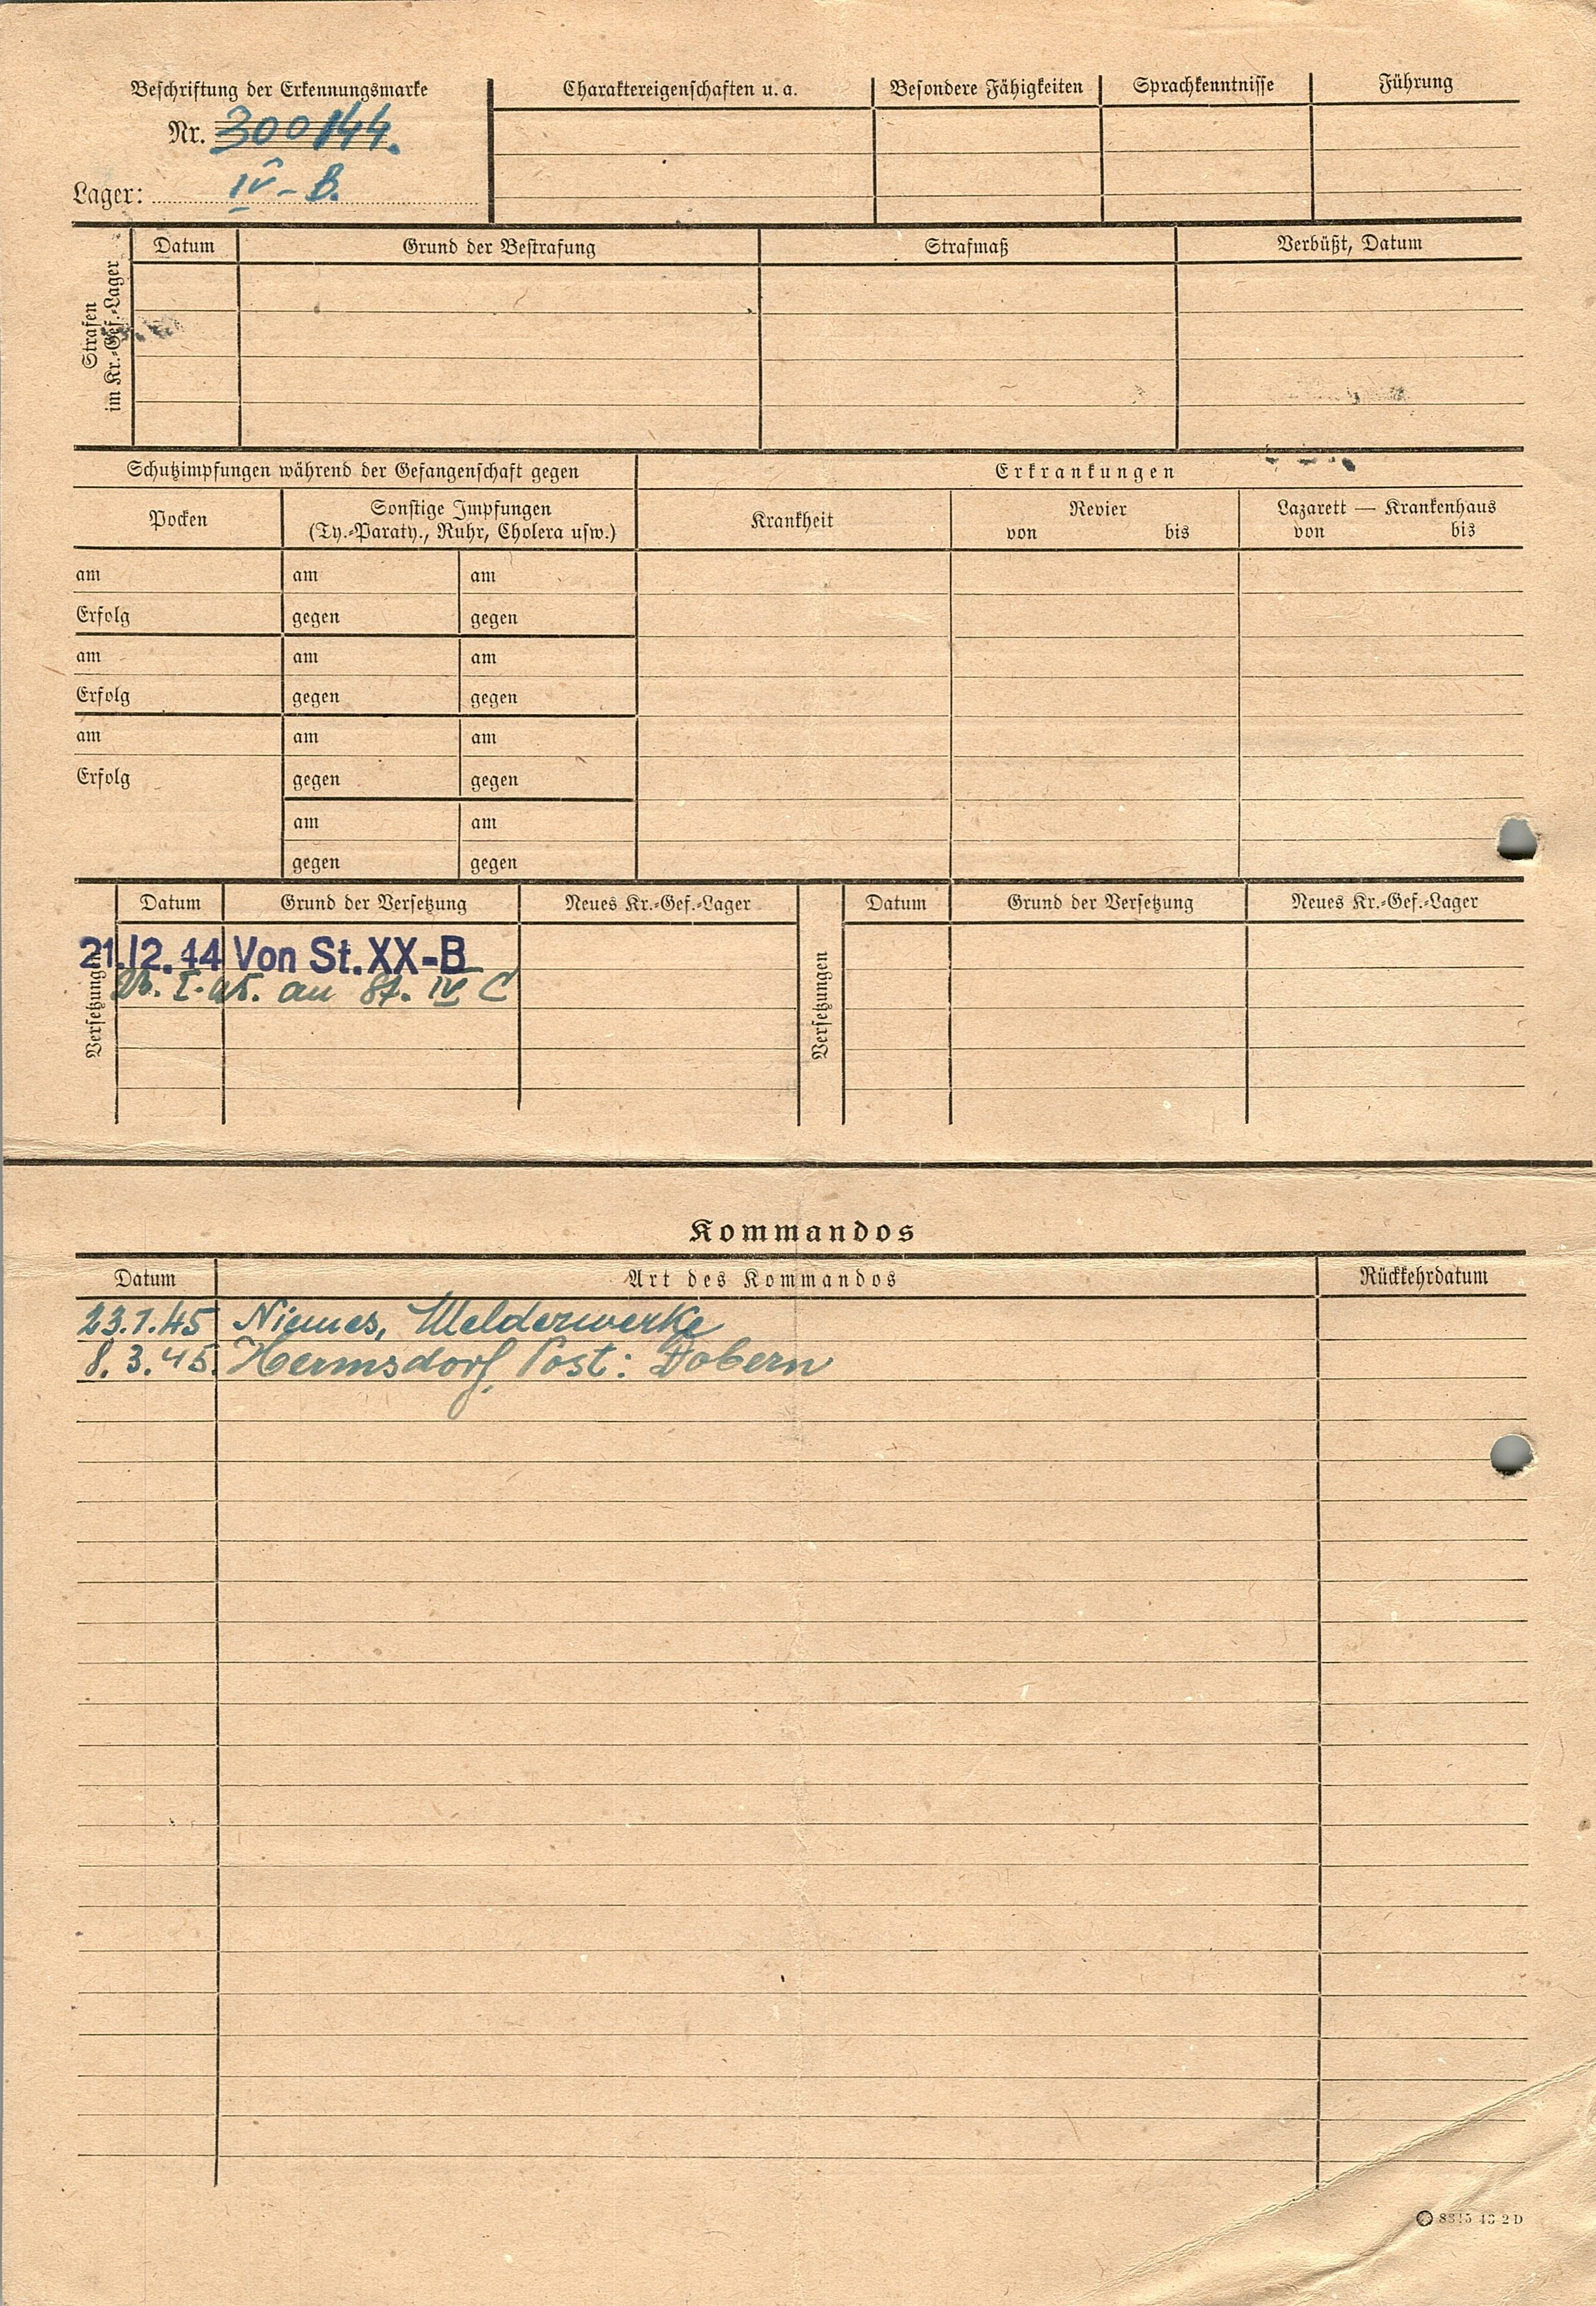 Beschriftung der Erkennungsmarke
Nr. 300144.
Lager: IV-B.
Charaktereigenschaften u. a.
Besondere Fähigkeiten
Sprachkenntnisse
Führung
Strafen im Kr.-Gef.-Lager
Datum
Grund der Bestrafung
Strafmaß
Verbüßt, Datum
Schutzimpfungen während der Gefangenschaft gegen
Erkrankungen
Pocken
Sonstige Impfungen
(Ty.-Paraty., Ruhr, Cholera usw.)
Krankheit
Revier
von bis
Lazarett — Krankenhaus
von bis
am am am
Erfolg gegen gegen
am am am
Erfolg gegen gegen
am am am
Erfolg gegen gegen
am am
gegen gegen
Versetzungen
Datum Grund der Versetzung Neues Kr.-Gef.-Lager
21.12.44 Von St.XX-B
I.45. an St. IV C
Versetzungen
Datum Grund der Versetzung Neues Kr.-Gef.-Lager
Kommandos
Datum Art des Kommandos Rückkehrdatum
23.1.45 Niemes, Melderwerke
8.3.45. Hermsdorf, Post: Dobern